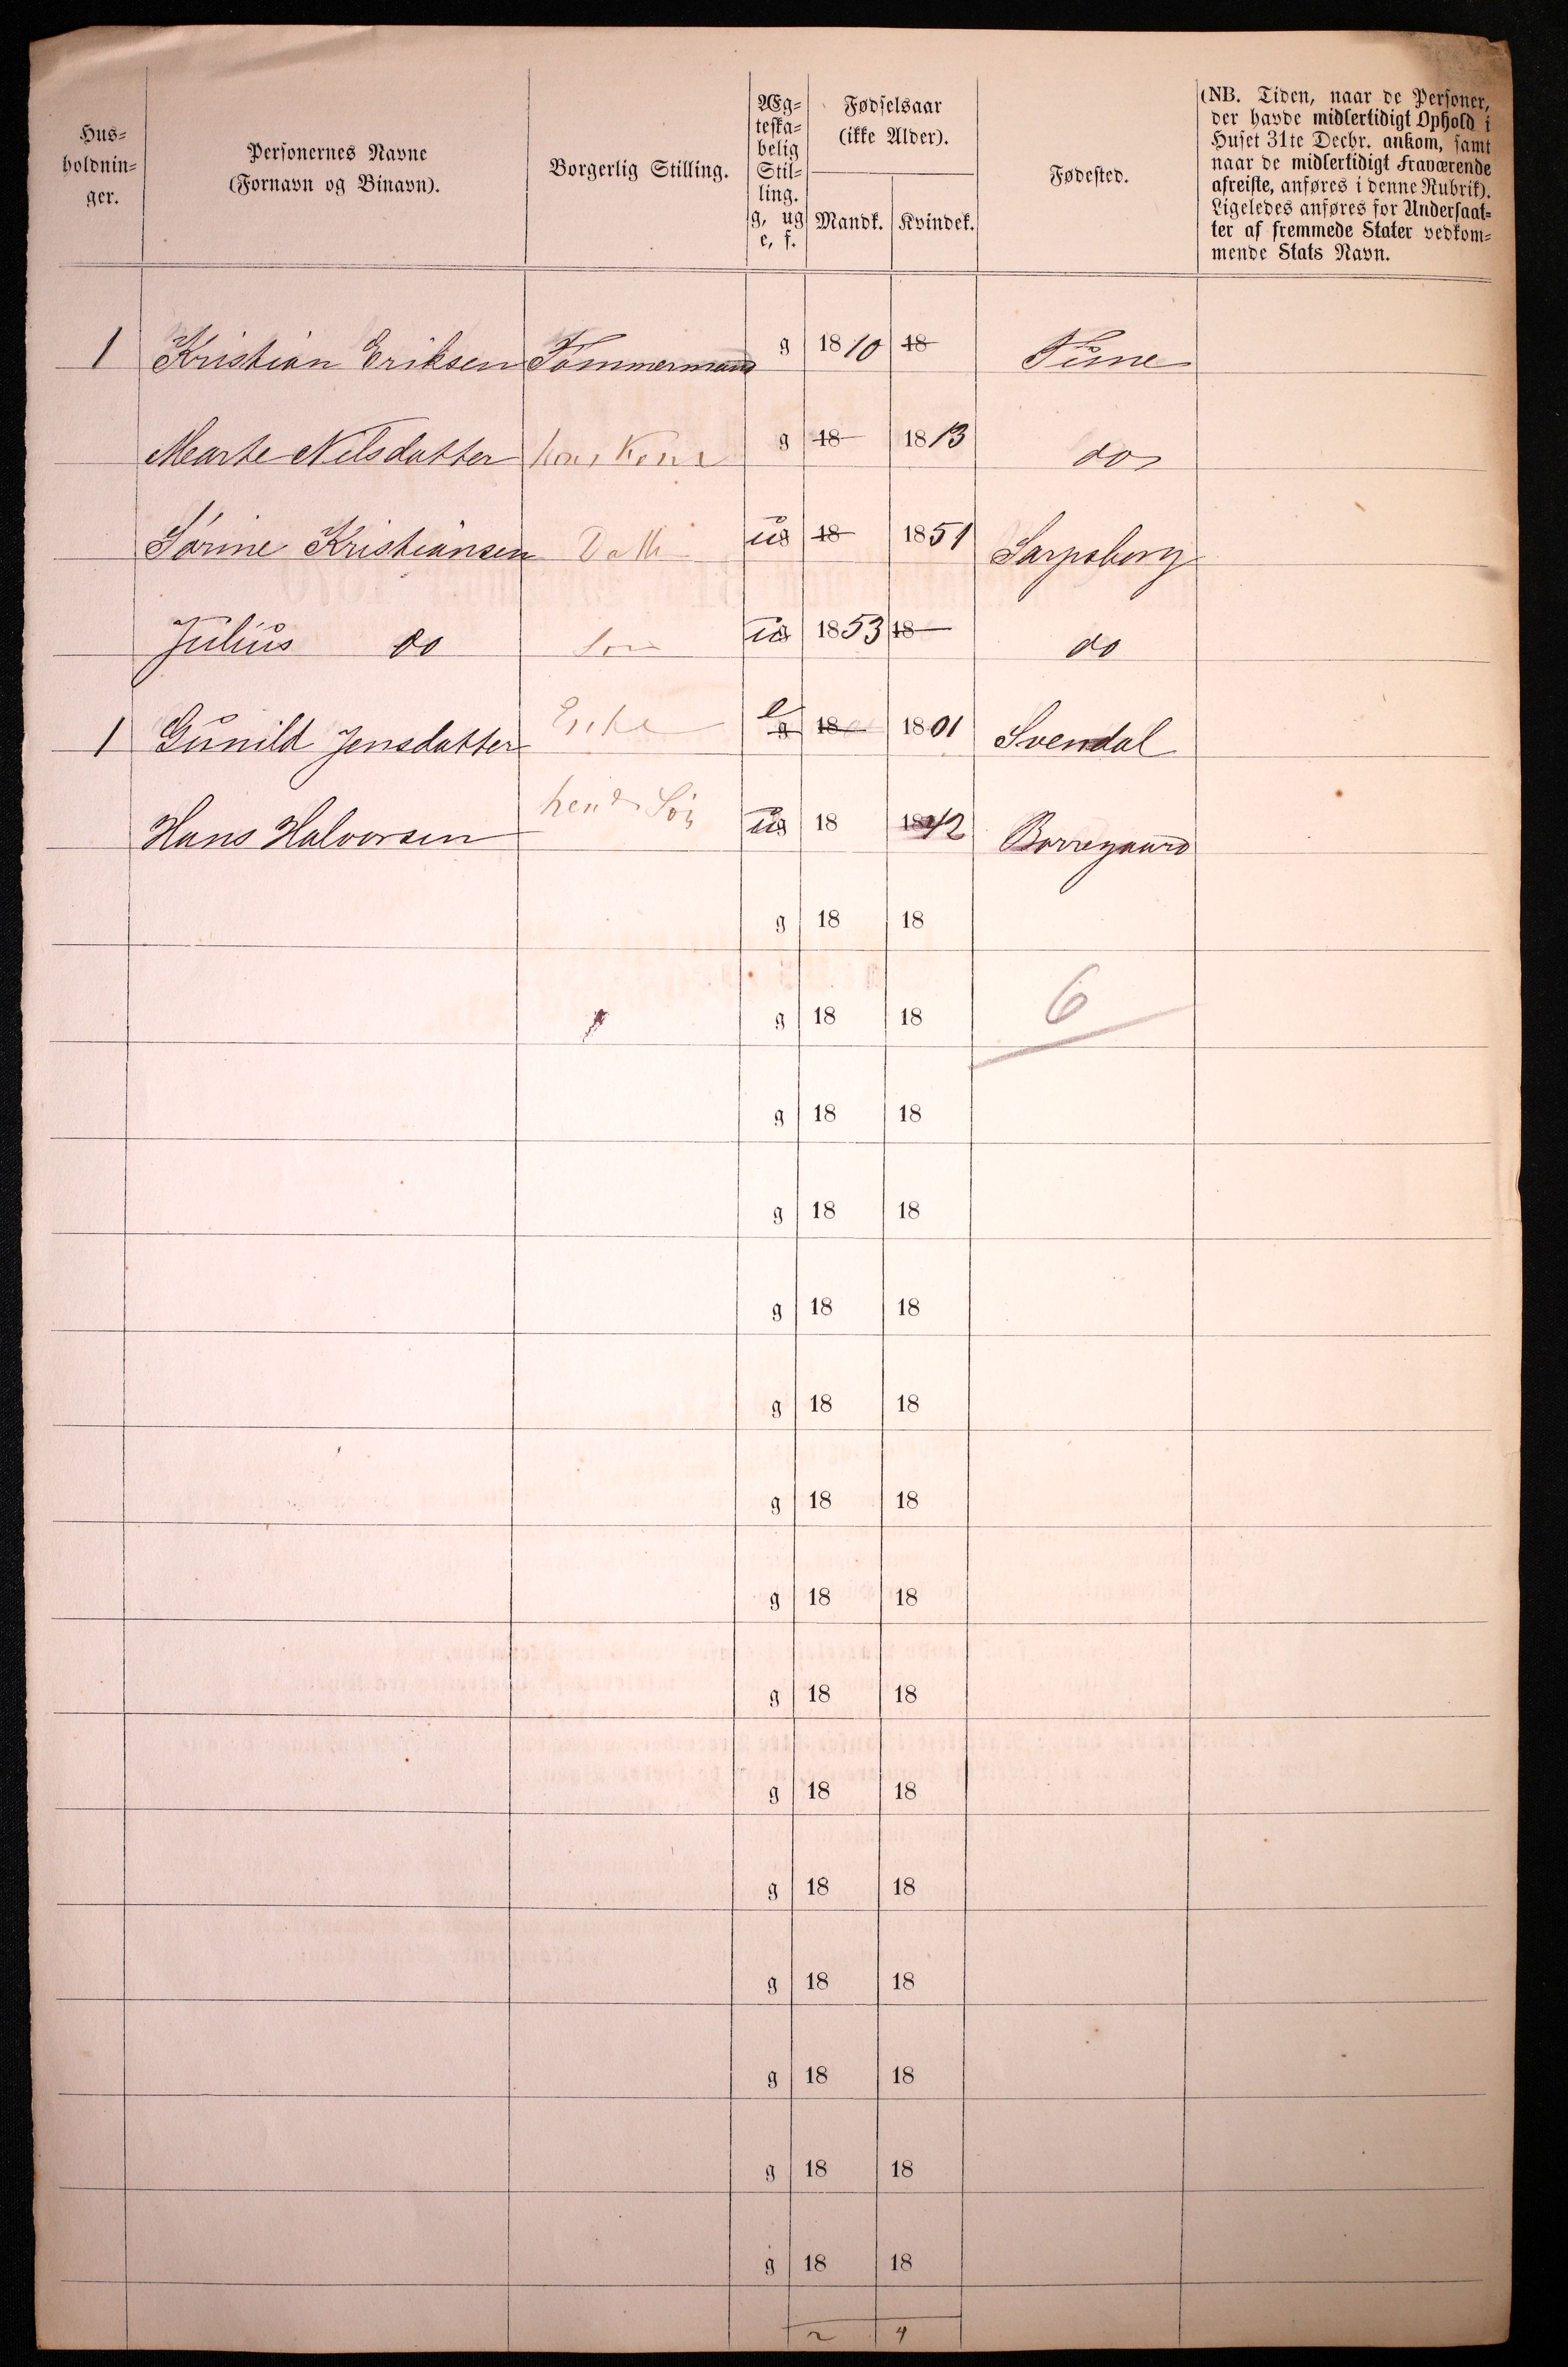 Hus=
holdnin=
ger.
Personernes Navne
(Fornavn og Binavn).
Borgerlig Stilling.
Æg=
teska=
belig
Stil=
ling.
g, ug
e, f.
Fødselsaar
(ikke Alder).
Mandk. Kvindek.
Fødested.
(NB. Tiden, naar de Personer,
der havde midlertidigt Ophold i
Huset 31te Decbr. ankom, samt
naar de midlertidigt fraværende
afreiste, anføres i denne Rubrik).
Ligeledes anføres for Undersaat=
ter af fremmede Stater vedkom=
mende Stats Navn.
1 Kristian Eriksen Tømmermand g 1810 18 Tune
Marte Nilsdatter hans Kone g 18 1813 do
Sørine Kristiansen Datt ug 18 1851 Sarpsborg
Julius do Søn ug 1853 18 do
1 Gunild Jensdatter Enke e g 18 1801 Svendal
Hans Halvorsen hendes Søn ug 18 1842 Borregaard
g 18 18
g 18 18 6
g 18 18
g 18 18
g 18 18
g 18 18
g 18 18
g 18 18
g 18 18
g 18 18
g 18 18
g 18 18
g 18 18
g 18 18
g 18 18
2 4